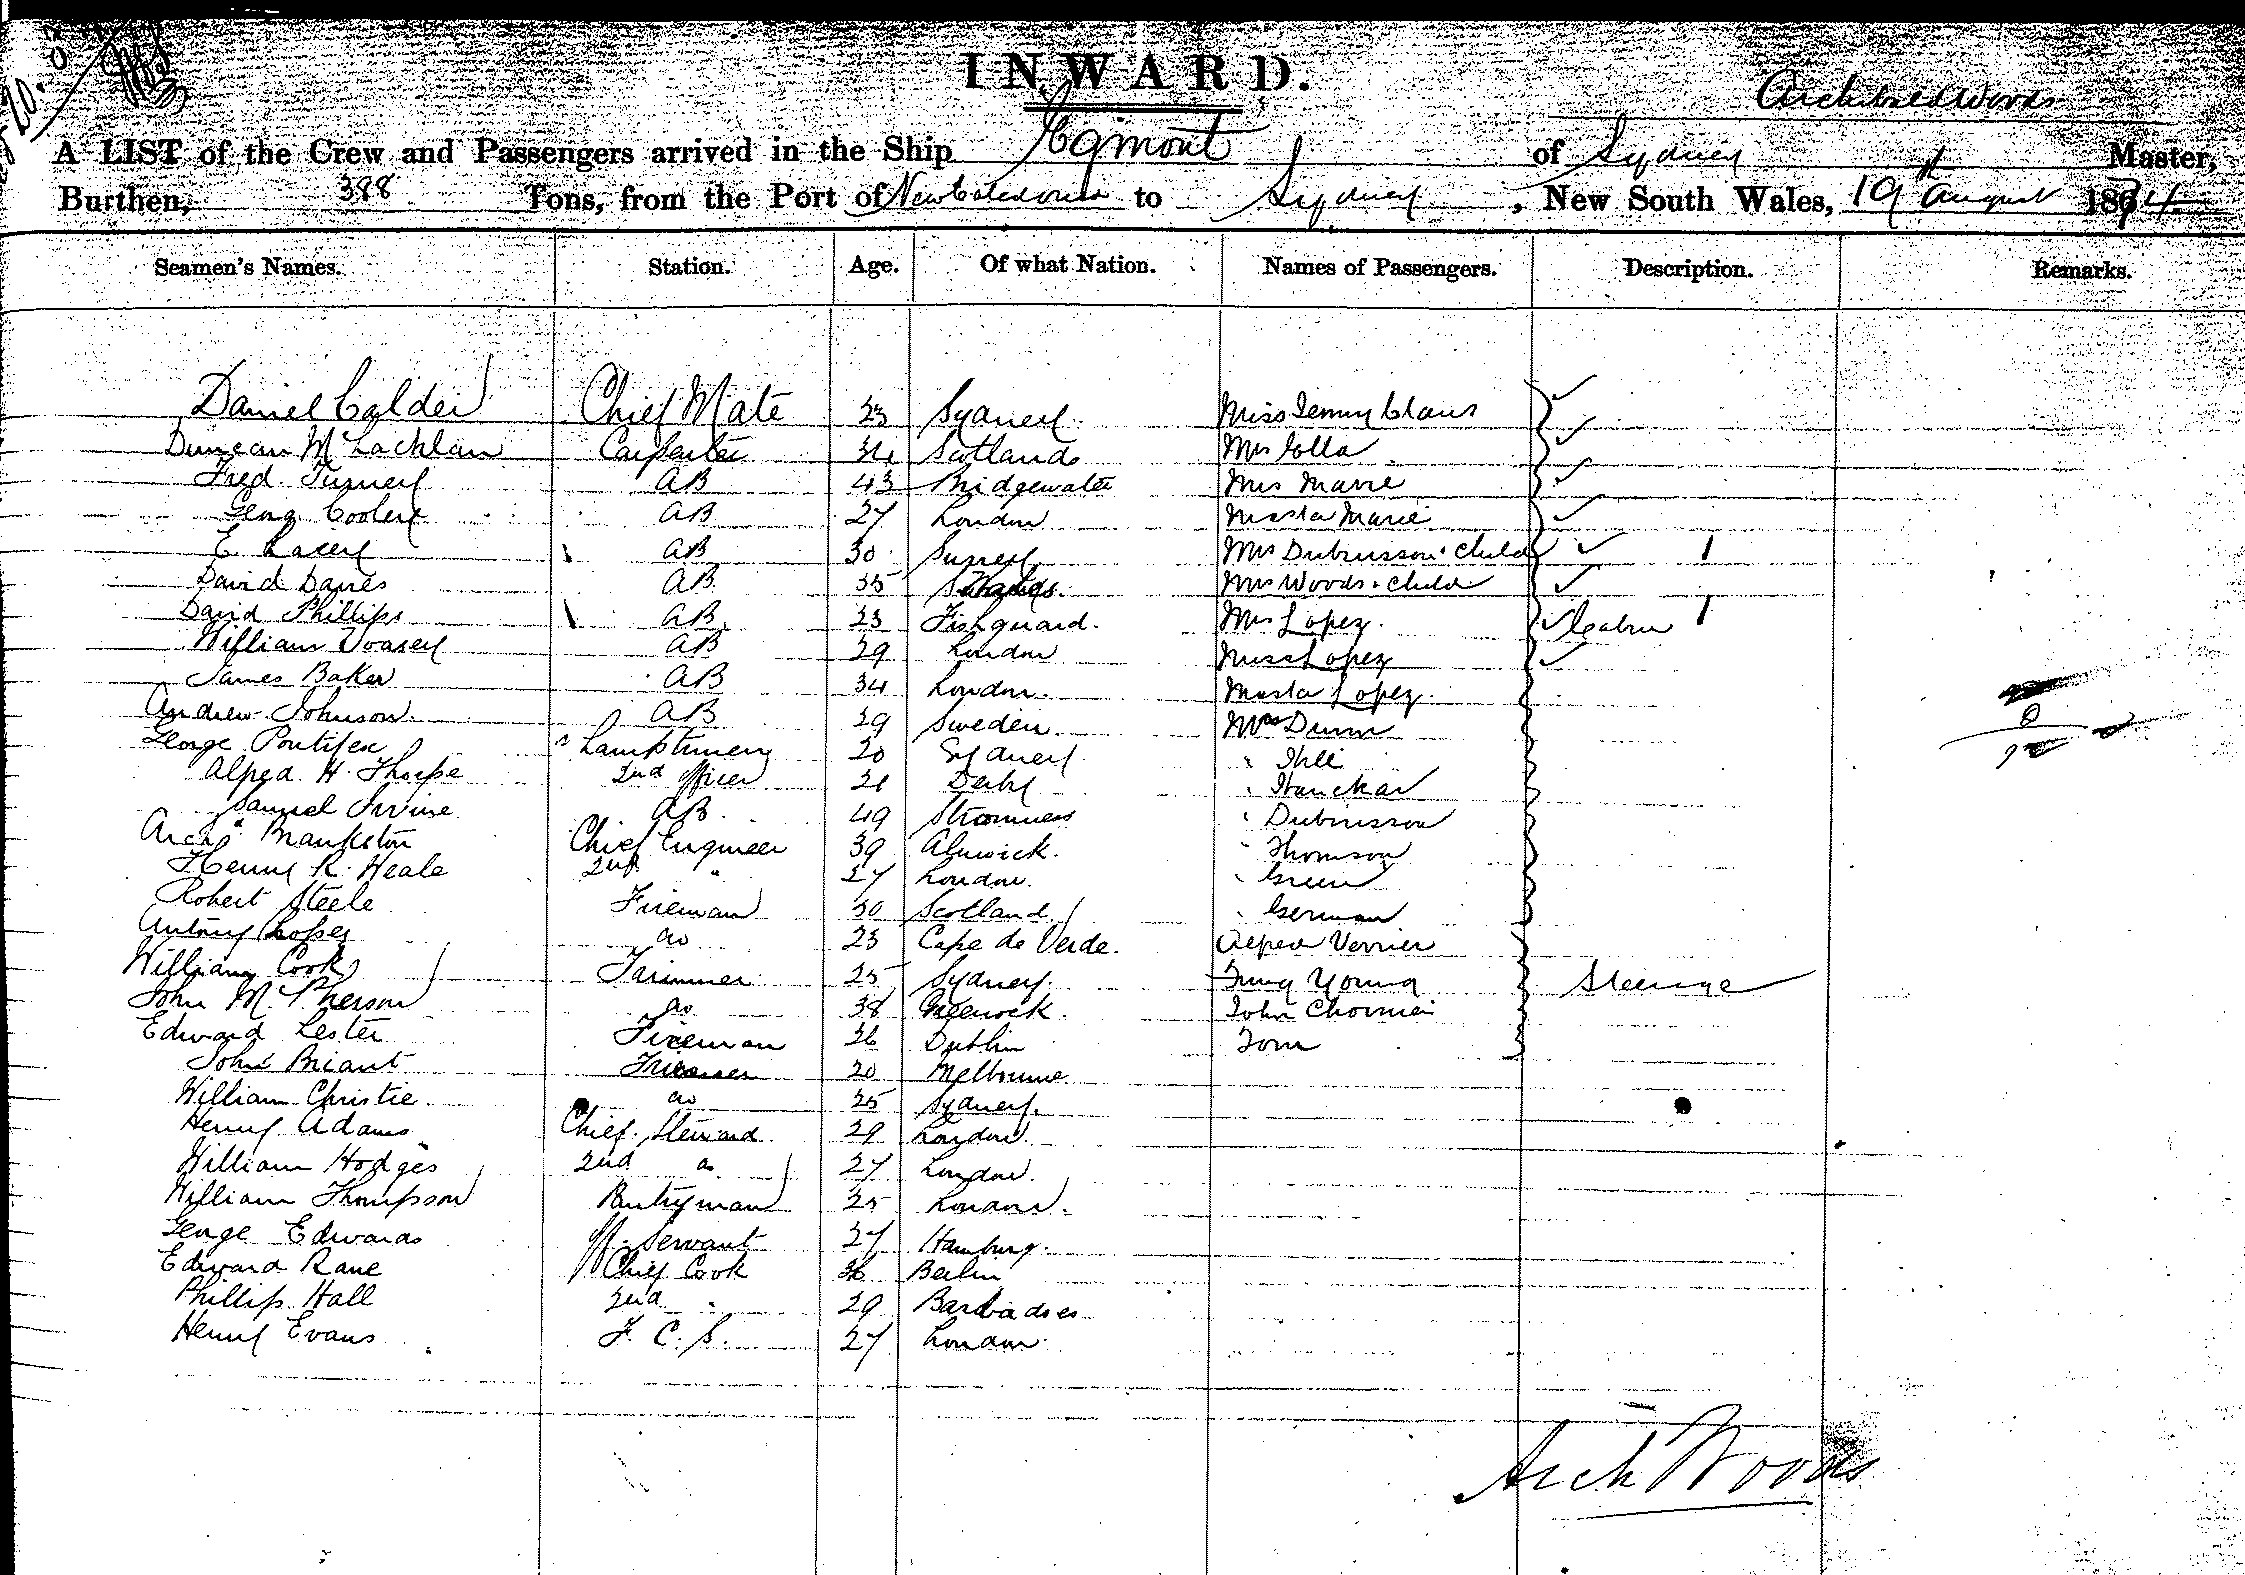 INWARD.
Archibald Woods
A LIST of the Crew and Passengers arrived in the Ship Egmont of Sydney Master,
Burthen, 398 Tons, from the Port of New Caledonia to Sydney, New South Wales, 19th August 1894
Seamen's Names. Station. Age. Of what Nation. Names of Passengers. Description. Remarks.
Daniel Calder Chief Mate 23 Sydney Miss Jenny Claus
Duncan McLachlan Carpenter 34 Scotland Mrs
Fred Turner AB 43 Bridgewater Mrs Marie
AB 27 London Master Marie
E Lacey AB 30 Surrey Mrs Dubuisson & child 1
David Davies AB 35 Mrs Woods & child
David Phillips AB 23 Fishguard. Mrs Lopez. Cabin 1
William AB 29 London Miss Lopez
James Baker AB 34 London. Master Lopez.
Andrew Johnson. AB 29 Sweden. Mr Dunn
George Pontifex Lamptrimmer 20 Sydney
Alfred H. Thorpe 2nd Officer 21 Derby
Samuel Irvine AB 49 Stromness " Dubuisson
Archd Brankston Chief Engineer 39 Alnwick. " Thomson
Henry R. Heale 2nd " 27 London. " Green
Robert Steele Fireman 30 Scotland " German
Antony Lopez do 23 Cape de Verde. Alfred Verrier
William Cook Trimmer 25 Sydney. Young Steerage
John McPherson do 38 Greenock. John
Edward Lester Fireman 26 Dublin Tom
John Briant Trimmer 20 Melbourne
William Christie do 25 Sydney.
Henry Adams Chief Steward 29 London.
William Hodges 2nd do 27 London.
William Thompson Pantryman 25 London.
George Edwards Servant 27 Hamburg.
Edward Rane Chief Cook 36 Berlin
Phillip Hall 2nd " 29 Barbadoes
Henry Evans F. C. S. 27 London.
Arch Woods